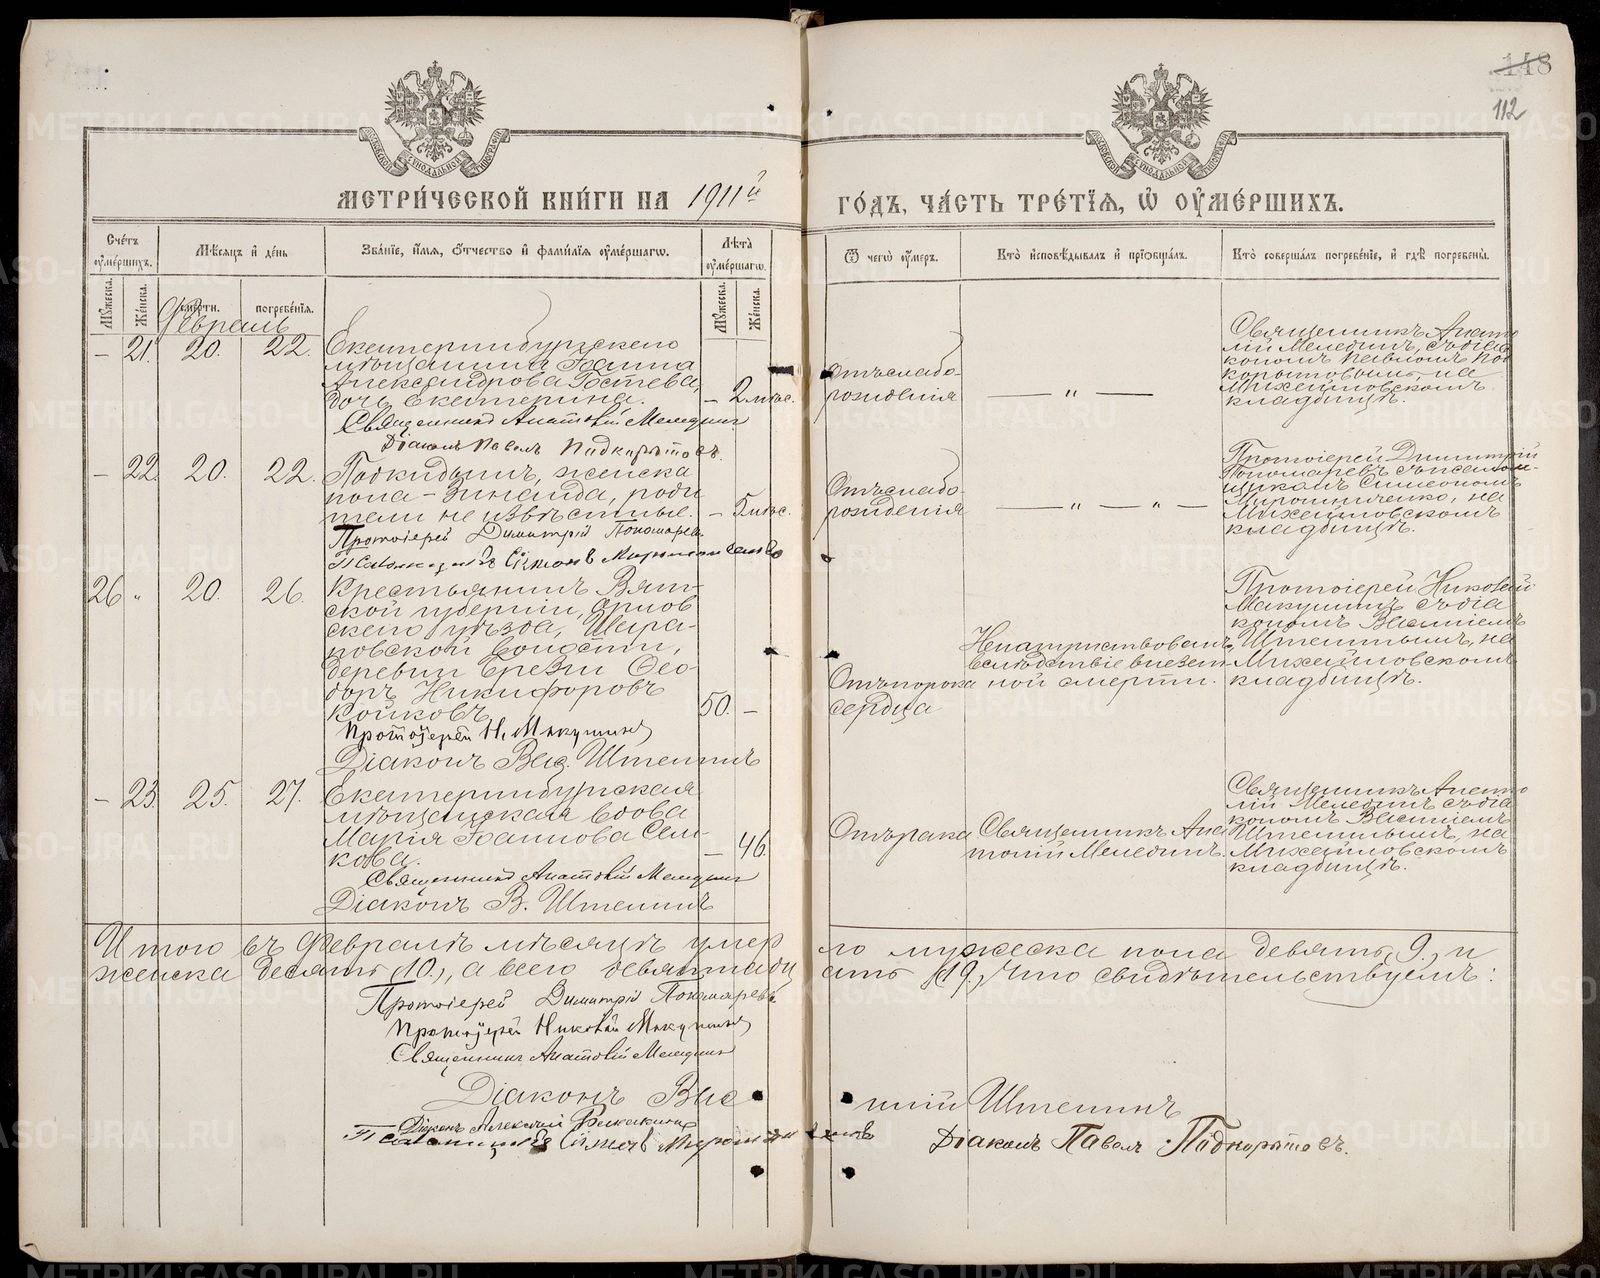 148
112
МЕТРИ́ЧЕСКОЙ КНИ́ГИ НА 1911й
ГО́ДЪ, ЧА́СТЬ ТРЕ́ТІЯ, Ѡ ОУМЕ́РШИХЪ.
Сче́тъ оуме́ршихъ.
Мѣ́сяцъ и де́нь
Зва́ніе, и́мя, о́тчество и фами́лія оуме́ршагѡ.
Лѣта̀ оуме́ршагѡ.
Ѿ чегѡ̀ оу́меръ.
Кто̀ исповѣ́дывалъ и пріѡбща́лъ.
Кто̀ соверша́лъ погребе́ніе, и гдѣ̀ погребены̀.
Му́жеска.
Же́нска.
сме́рти.
погребе́нія.
Му́жеска.
Же́нска.
Февраль
– 21. 20. 22.
Екатеринбургскаго
мѣщанина Іоанна
Александрова Гостева,
дочь Екатерина.
– 2 мѣс.
Священникъ Анатолій Мелединъ
Діаконъ Павелъ Подкорытовъ.
Отъ слабо-
рожденія
— " —
Священникъ Анато
лій Мелединъ, съ діа
кономъ Павломъ Под
корытовымъ, на
Михайловскомъ
кладбищѣ.
– 22. 20. 22.
Подкидышъ, женска
пола – Зинаида, роди
тели не извѣстные.
– 5 мѣс.
Протоіерей Димитрій Пономаревъ
Псаломщикъ Сімеонъ Мирошниченко
Отъ слабо-
рожденія
— " — " —
Протоіерей Димитрій
Пономаревъ съ псалом-
щикомъ Симеономъ
Мирошниченко, на
Михайловскомъ
кладбищѣ.
26 " 20. 26.
Крестьянинъ Вят-
ской губерніи,
скаго уѣзда,
новской волости,
деревни Ѳео
доръ Никифоровъ
Койковъ
50. –
Протоіерей Н. Макушинъ
Діаконъ Вас. Штенинъ
Отъ порока
сердца
Не напутствованъ,
вслѣдствіе внезап-
ной смерти.
Протоіерей Николай
Макушинъ съ діа
кономъ Василіемъ
на
Михайловскомъ
кладбищѣ.
– 23. 25. 27.
Екатеринбургская
мѣщанская вдова
Марія Іоаннова
кова.
– 46.
Священникъ Анатолій Мелединъ
Діаконъ В. Штенинъ
Отъ рака
Священникъ Ана
толій Мелединъ.
Священникъ Анато
лій Мелединъ съ діа
кономъ Василіемъ
на
Михайловскомъ
кладбищѣ.
Итого въ Февралѣ мѣсяцѣ умер ло мужеска пола девять, 9., и
женска десять (10.), а всего девятнадц ать (19.) Что свидѣтельствуемъ:
Протоіерей Димитрій Пономаревъ
Протоіерей Николай Макушинъ
Священникъ Анатолій Мелединъ
Діаконъ Вас илій Штенинъ
Діаконъ Алексій
Псаломщикъ Сімеонъ Мирошниченко
Діаконъ Павелъ Подкорытовъ.
METRIKI.GASO-URAL.RU